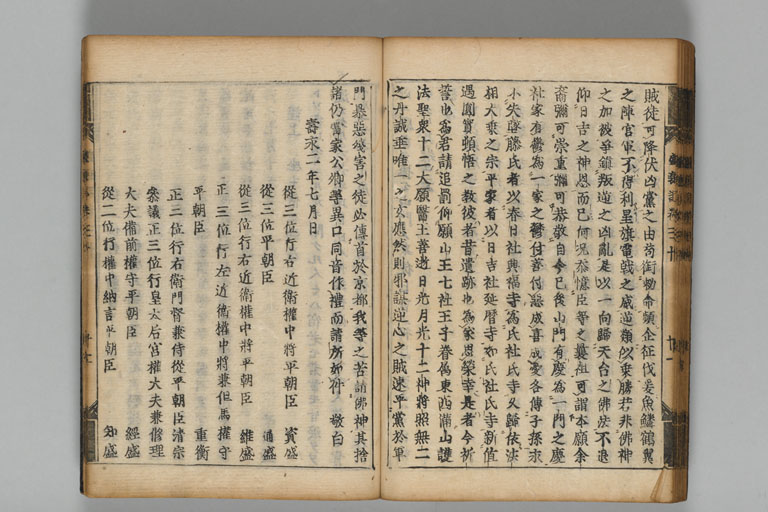 賊徒可降伏凶黨之由苟銜勅命頻企征伐爰魚鱗鶴翼
之陣官軍不得利星旗電戟之威逆類似乗勝若非佛神
之加被爭鎮叛逆之凶亂是以一向歸天台之佛法不退
仰日吉之神恩而已何况忝憶臣等之曩祖可謂本願余
裔彌可崇重彌可恭敬自今已後山門有慶為一門之慶
社家有欝為一家之欝付善付惡成喜成愛各傳子孫永
不失墜藤氏者以春日社興福寺為氏社氏寺久歸依法
相大乗之宗平家者以日吉社延暦寺如氏社氏寺新值
遇圓實頓悟之教彼者昔遺跡也為家思榮幸是者今祈
誓也為君請追罰仰願山王七社王子眷屬東西滿山護
法聖衆十二大願醫王善逝日光月光十二神將照無二
之丹誠垂唯一之玄應然則邪謀逆心之賊速平黨於軍
門暴惡殘害之徒必傳首於京都我等之苦請佛神其捨
諸仍當家公卿等異口同音作禮而請所如件 敬白
壽永二年七月日
從三位行右近衛權中將平朝臣 資盛
從三位平朝臣 通盛
從三位行右近衛權中將平朝臣 維盛
正三位行左近衛權中將兼但馬權守
平朝臣 重衡
正二位行右衛門督兼侍從平朝臣清宗
參議正三位行皇太后宮權大夫兼修理
大夫備前權守平朝臣 經盛
從二位行權中納言平朝臣 知盛